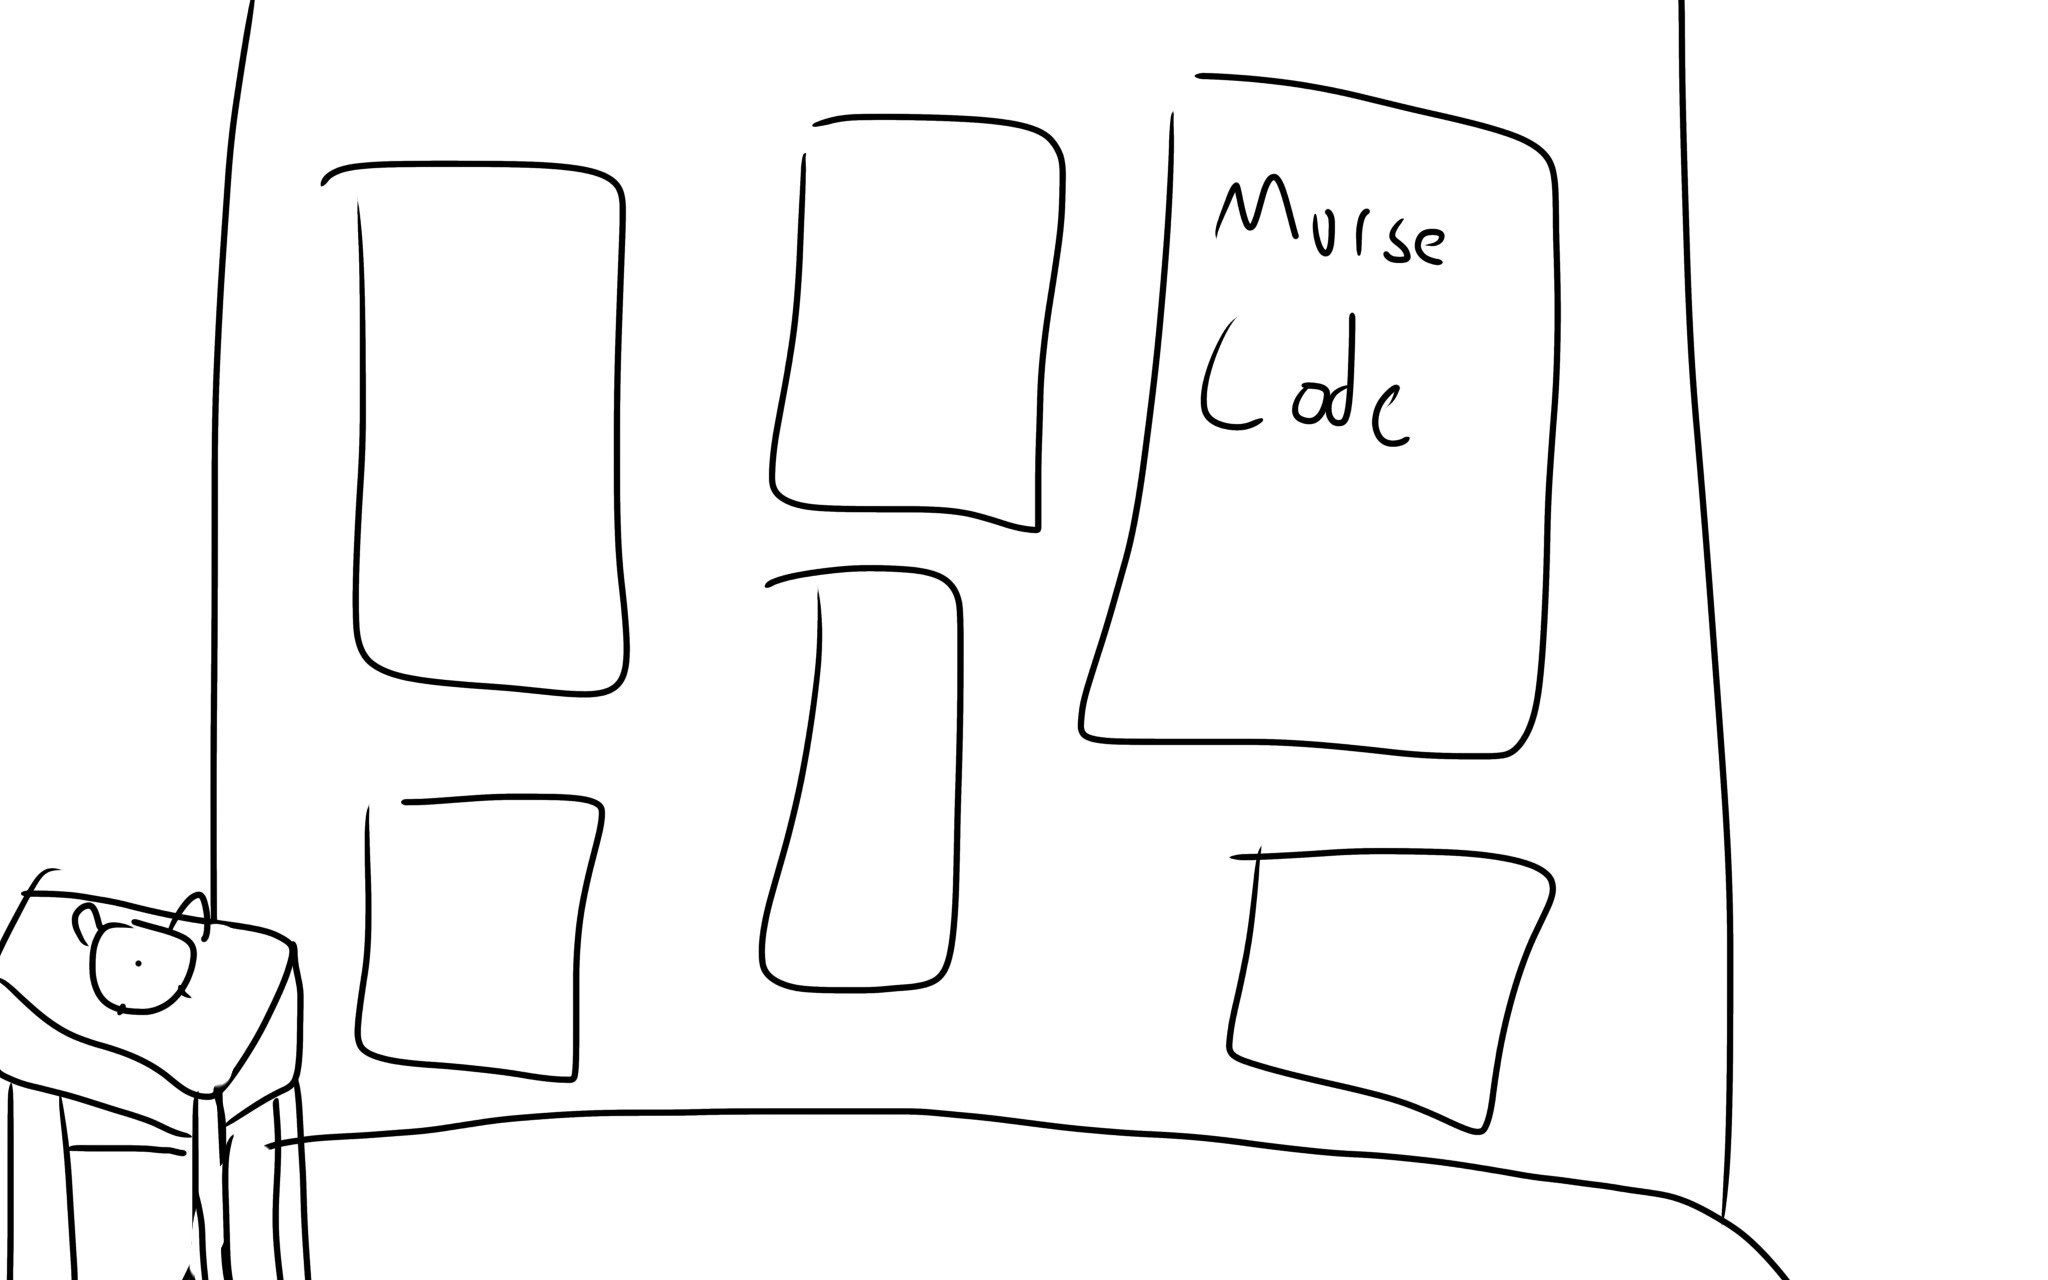 Morse
Code